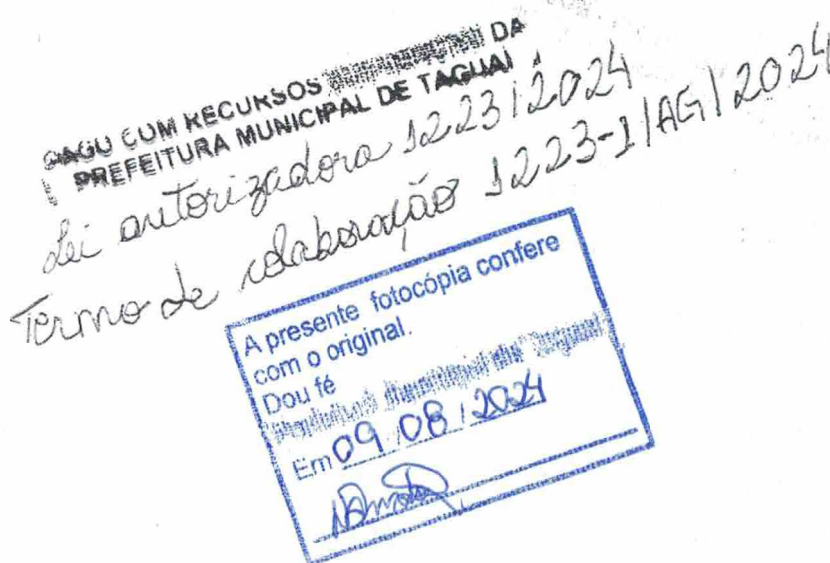 PAGO COM RECURSOS DA
PREFEITURA MUNICIPAL DE TAGUAÍ
Lei autorizadora 1223/2024
Termo de colaboração 1223-1/AG/2024
A presente fotocópia confere
com o original.
Dou fé
Em 09/08/2024